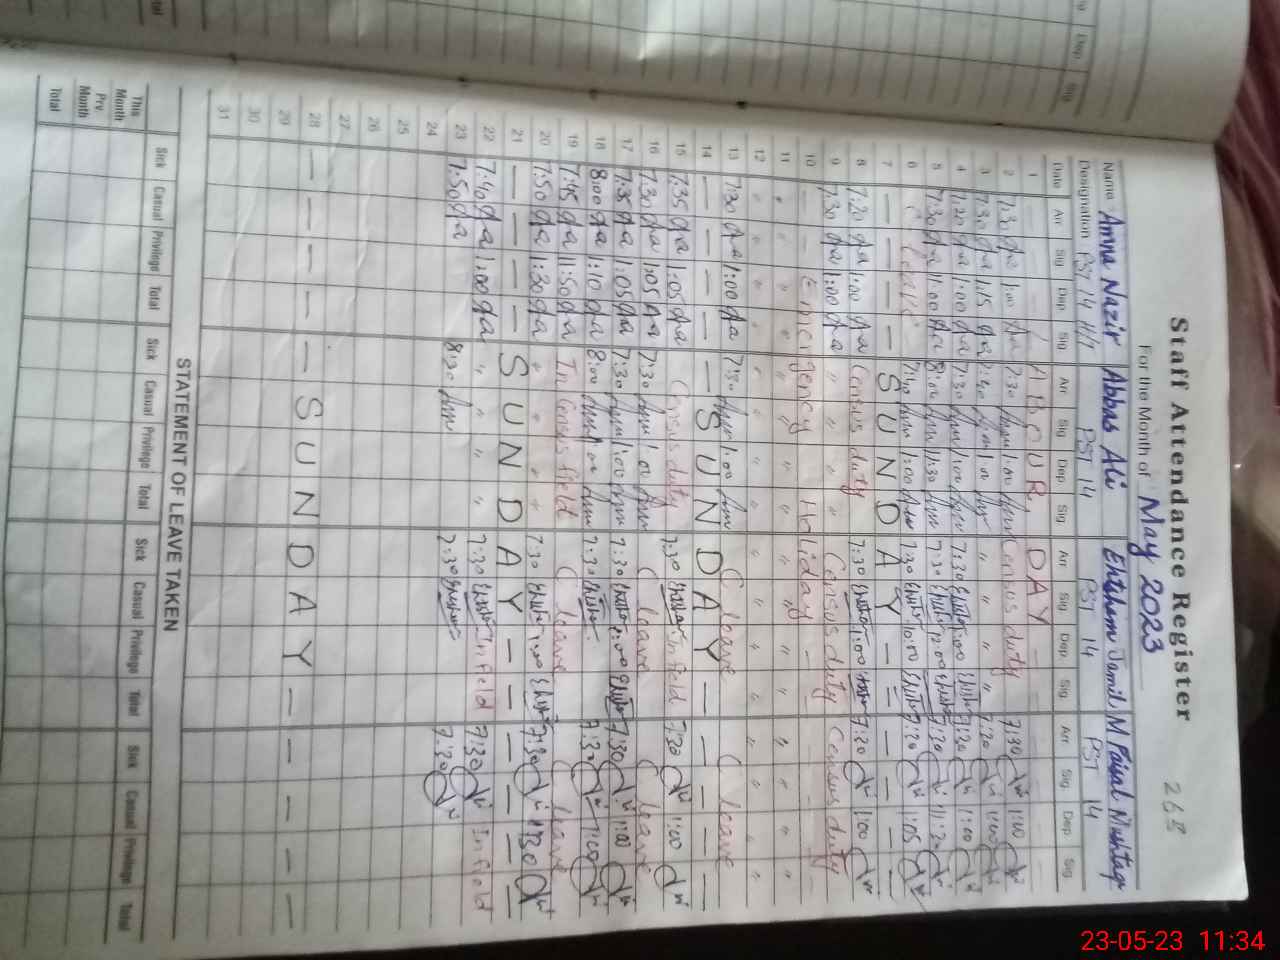 Staff Attendance Register
268
For the Month of May 2023
Name Amna Nazir Abbas Ali Ehtsham Jamil M Faisal Mushtaq
Designation PST 14 H/T PST 14 PST 14 PST 14
Date Arr Sig Dep Sig Arr Sig Dep Sig Arr Sig Dep Sig Arr Sig Dep Sig
1 LABOUR DAY
2 7:30 1:00 7:30 1:00 Census duty 7:30 1:00
3 7:30 1:15 7:40 1:00 " " " 7:20 1:00
4 7:20 1:00 7:30 1:00 7:30 1:00 7:20 1:00
5 7:30 1:00 8:00 11:30 7:30 12:00 7:30 11:20
6 7:40 1:00 7:30 10:00 7:20 1:05
7 — — — — SUNDAY — —
8 7:20 1:00 Census duty 7:30 1:00 7:20 1:00
9 7:30 1:00 " " " Census duty Census duty
10 Emergency Holiday
11 " " " " " " "
12 " " " " " " "
13 7:30 1:00 7:30 1:00 C leave C leave
14 — — — — — SUNDAY — — — — —
15 7:35 1:05 Census duty 7:30 In field 7:30 1:00
16 7:30 1:05 7:30 1:00 C leave C leave
17 7:35 1:05 7:30 1:00 7:30 1:00 7:30 1:00
18 8:00 1:10 8:00 1:00 7:30 7:30 1:00
19 7:45 11:50 In Census field C leave C leave
20 7:50 1:30 " " " 7:30 1:00 7:30 1:30
21 — — — — SUNDAY — — — — — —
22 7:40 1:00 " " " 7:30 In field 7:30 In field
23 7:50 8:30 7:30 7:30
24
25
26
27
28 — — — — — SUNDAY — — — — — —
29
30
31
STATEMENT OF LEAVE TAKEN
Sick Casual Privilege Total Sick Casual Privilege Total Sick Casual Privilege Total Sick Casual Privilege Total
This Month
Prv Month
Total
Dep Sig
23-05-23 11:34